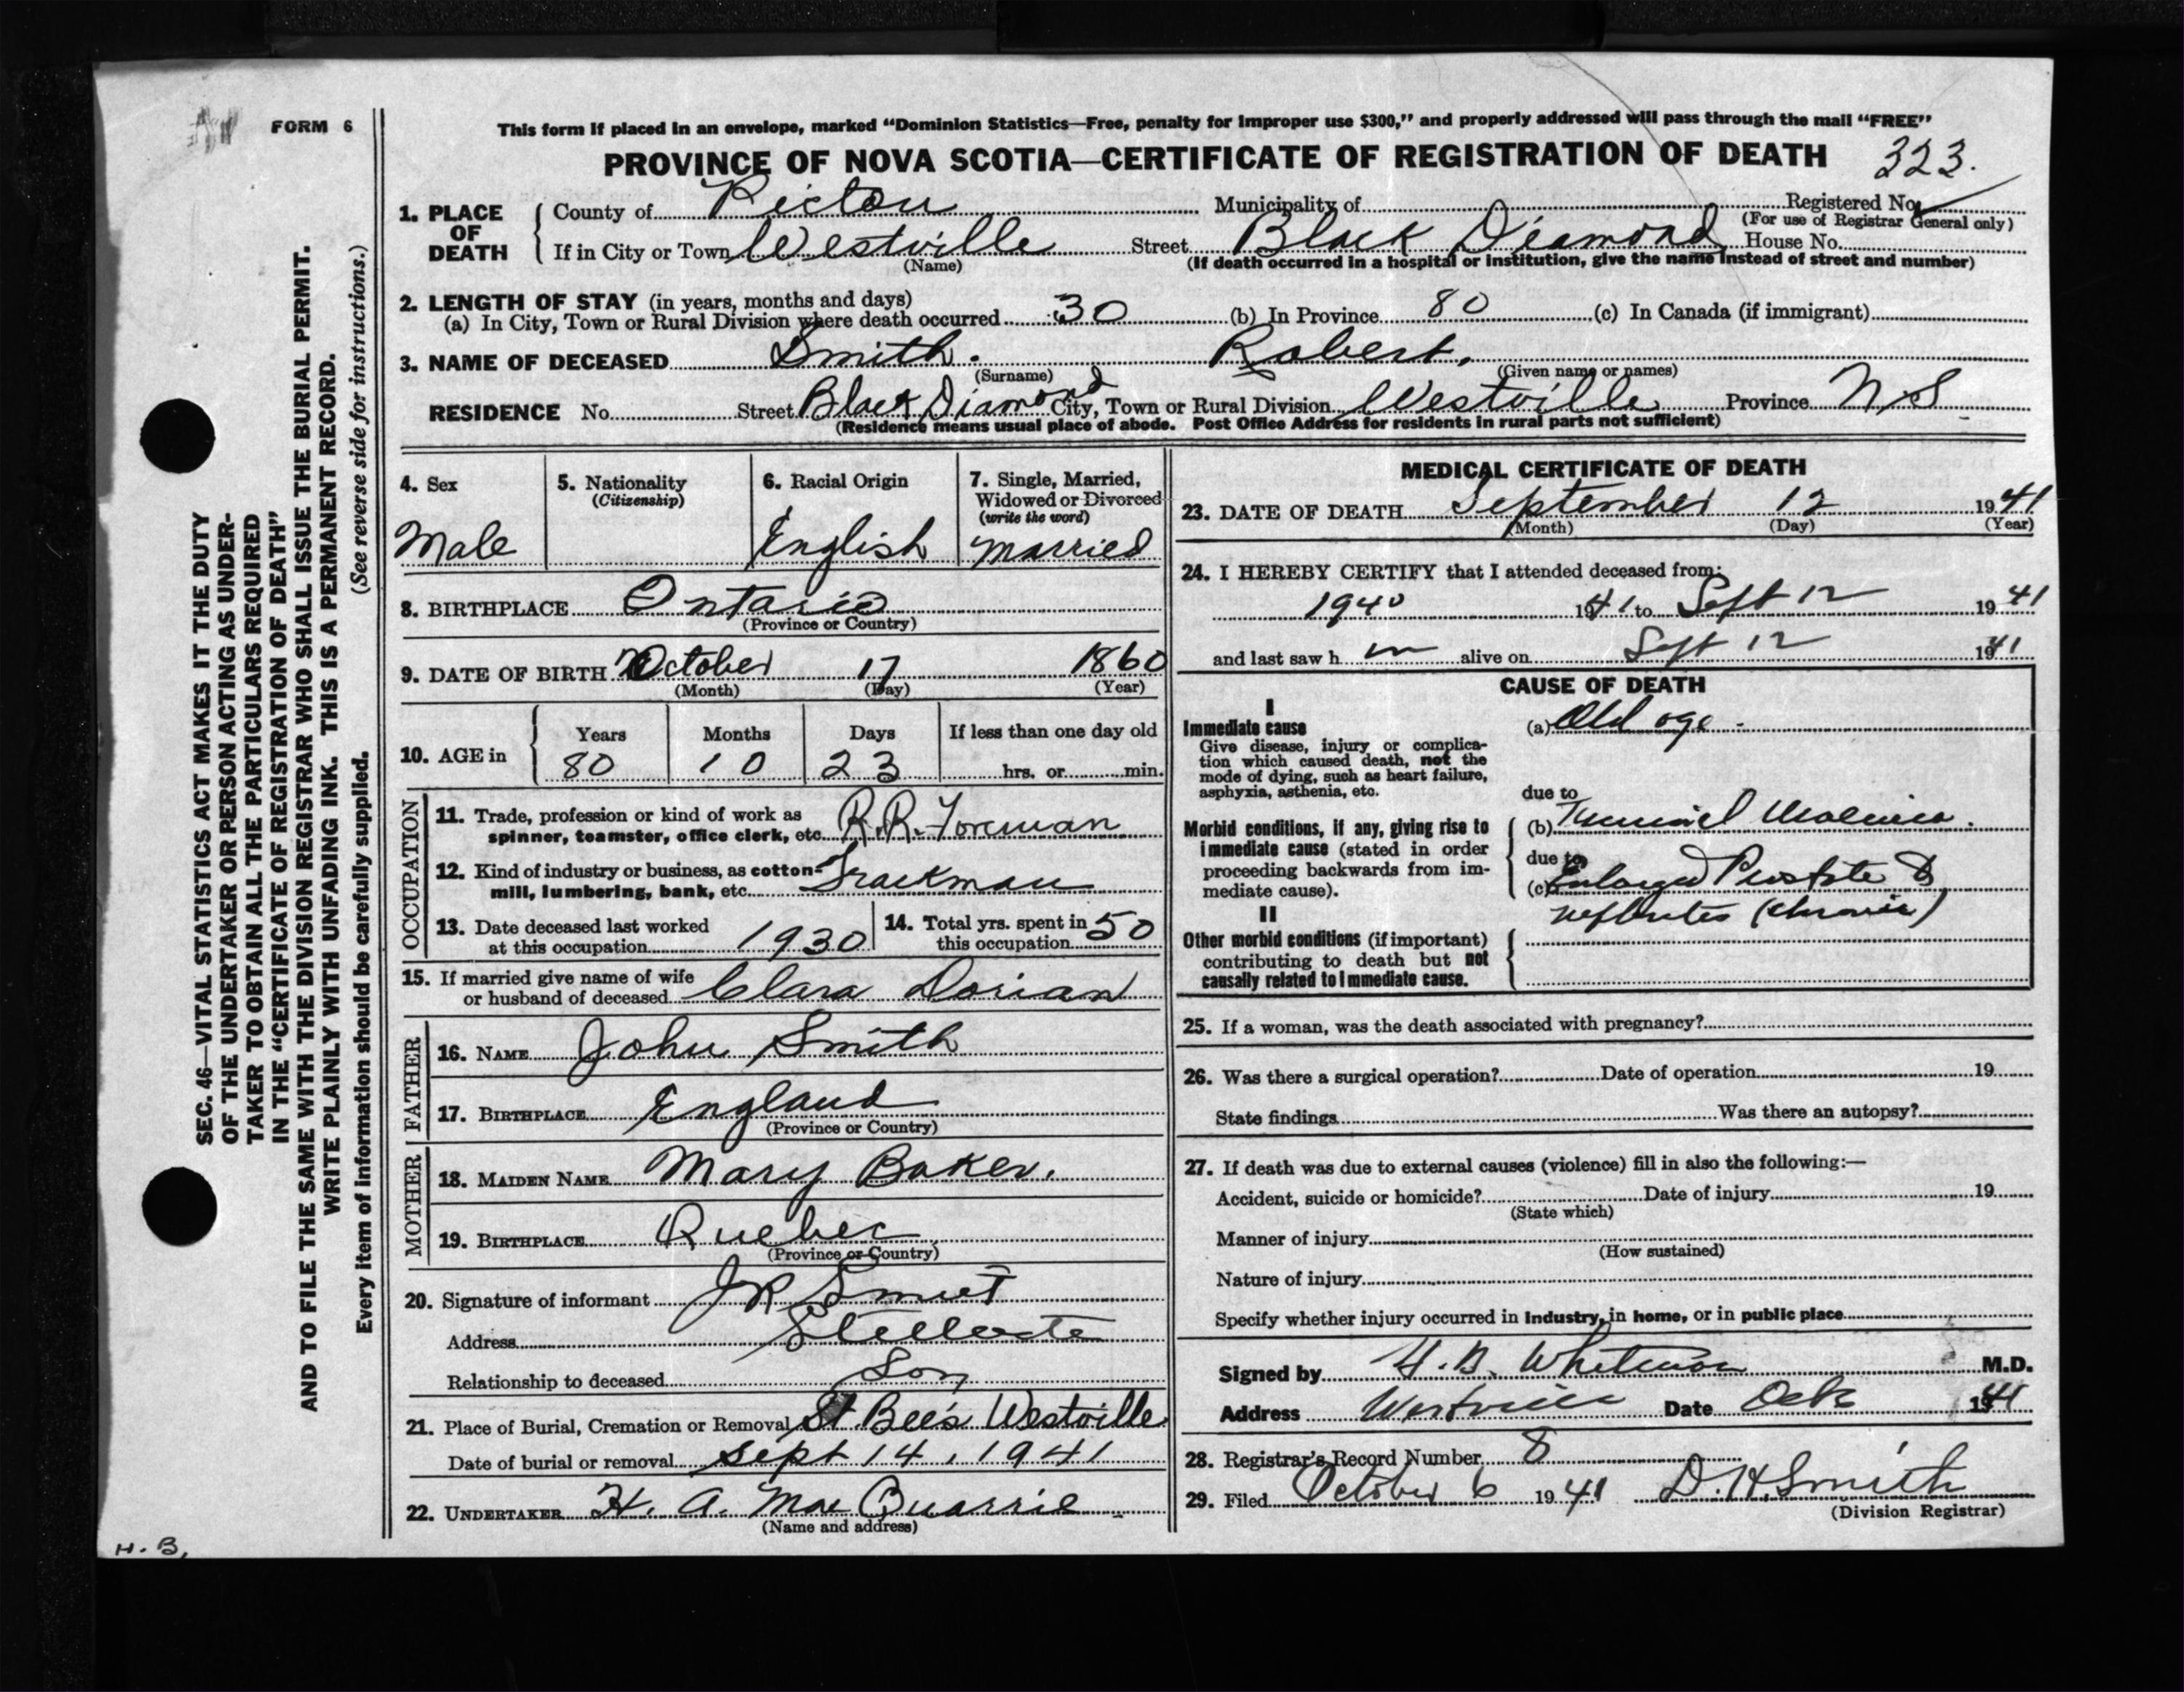 FORM 6
This form if placed in an envelope, marked "Dominion Statistics—Free, penalty for improper use $300," and properly addressed will pass through the mail "FREE"
PROVINCE OF NOVA SCOTIA—CERTIFICATE OF REGISTRATION OF DEATH 323.
1. PLACE OF DEATH
County of Pictou Municipality of Registered No.
(For use of Registrar General only)
If in City or Town Westville Street Black Diamond House No.
(Name) (If death occurred in a hospital or institution, give the name instead of street and number)
2. LENGTH OF STAY (in years, months and days)
(a) In City, Town or Rural Division where death occurred 30 (b) In Province 80 (c) In Canada (if immigrant)
3. NAME OF DECEASED Smith. Robert.
(Surname) (Given name or names)
RESIDENCE No. Street Black Diamond City, Town or Rural Division Westville Province N S
(Residence means usual place of abode. Post Office Address for residents in rural parts not sufficient)
4. Sex
Male
5. Nationality
(Citizenship)
6. Racial Origin
English
7. Single, Married,
Widowed or Divorced
(write the word)
Married
8. BIRTHPLACE Ontario
(Province or Country)
9. DATE OF BIRTH October 17 1860
(Month) (Day) (Year)
10. AGE in
Years Months Days If less than one day old
80 10 23 hrs. or min.
OCCUPATION
11. Trade, profession or kind of work as
spinner, teamster, office clerk, etc. R.R. Foreman
12. Kind of industry or business, as cotton-
mill, lumbering, bank, etc. Trackman
13. Date deceased last worked
at this occupation 1930
14. Total yrs. spent in
this occupation 50
15. If married give name of wife
or husband of deceased Clara Dorian
FATHER
16. NAME John Smith
17. BIRTHPLACE England
(Province or Country)
MOTHER
18. MAIDEN NAME Mary Baker.
19. BIRTHPLACE Quebec
(Province or Country)
20. Signature of informant J R Smith
Address
Relationship to deceased Son
21. Place of Burial, Cremation or Removal St Bee's Westville
Date of burial or removal Sept 14, 1941
22. UNDERTAKER H. A. Mac Quarrie
(Name and address)
MEDICAL CERTIFICATE OF DEATH
23. DATE OF DEATH September 12 1941
(Month) (Day) (Year)
24. I HEREBY CERTIFY that I attended deceased from:
1940 1941 to Sept 12 1941
and last saw h im alive on Sept 12 1941
CAUSE OF DEATH
I
Immediate cause
Give disease, injury or complica-
tion which caused death, not the
mode of dying, such as heart failure,
asphyxia, asthenia, etc.
(a) Old age -
due to
Morbid conditions, if any, giving rise to
immediate cause (stated in order
proceeding backwards from im-
mediate cause).
(b)
due to
(c) Enlarged Prostate &
nephritis (chronic)
II
Other morbid conditions (if important)
contributing to death but not
causally related to immediate cause.
25. If a woman, was the death associated with pregnancy?
26. Was there a surgical operation? Date of operation 19
State findings Was there an autopsy?
27. If death was due to external causes (violence) fill in also the following:—
Accident, suicide or homicide? Date of injury 19
(State which)
Manner of injury
(How sustained)
Nature of injury
Specify whether injury occurred in industry, in home, or in public place
Signed by H. B. Whitman M.D.
Address Westville Date Oct 6 1941
28. Registrar's Record Number 8
29. Filed October 6 1941 D. H. Smith
(Division Registrar)
SEC. 46—VITAL STATISTICS ACT MAKES IT THE DUTY
OF THE UNDERTAKER OR PERSON ACTING AS UNDER-
TAKER TO OBTAIN ALL THE PARTICULARS REQUIRED
IN THE "CERTIFICATE OF REGISTRATION OF DEATH"
AND TO FILE THE SAME WITH THE DIVISION REGISTRAR WHO SHALL ISSUE THE BURIAL PERMIT.
WRITE PLAINLY WITH UNFADING INK. THIS IS A PERMANENT RECORD.
Every item of information should be carefully supplied. (See reverse side for instructions.)
H. B.